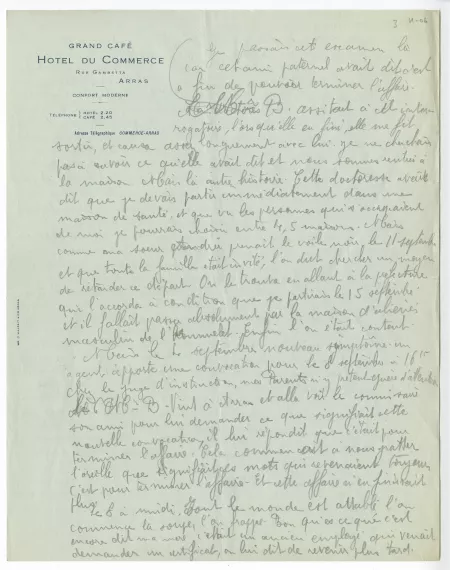 3
GRAND CAFÉ
HOTEL DU COMMERCE
RUE GAMBETTA
ARRAS
CONFORT MODERNE
TÉLÉPHONE HOTEL 2.20
CAFÉ 2.45
Adresse Télégraphique COMMERCE-ARRAS
Je passais cet examen là
car cet ami paternel avait dit c'est
afin de pouvoir terminer l'affaire.
B. assistait à cet inter
rogatoire, lorsqu'elle en finit elle me fit
sortir, et causa assez longuement avec lui. Je ne cherchais
pas à savoir ce qu'elle avait dit et nous sommes rentrés à
la maison. Mais là autre histoire. Cette doctoresse avait
dit que je devais partir immédiatement dans une
maison de santé, et que vu les personnes qui s'occupaient
de moi je pourrais choisir entre les 5 maisons. Mais
comme ma soeur prenait le voile noir, le 11 septembre
et que toute la famille était invitée, l'on dut chercher un moyen
de retarder ce départ. On le trouva en allant à la préfecture
qui l'accorda à condition que je partirais le 15 septembre.
et il fallait passer absolument par la maison d'aliénés
Enfin l'on était content.
Mais le septembre nouveau symptôme un
agent apporte une convocation pour le 8 septembre à 16 h
chez le juge d'instruction, mes Parents
B. Vint à Arras et alla voir le commissaire
son ami pour lui demander ce que signifiait cette
nouvelle convocation, il lui répondit que c'était pour
terminer l'affaire. Cela commençait à nous gratter
l'oreille que signifiaient ces mots qui revenaient toujours
c'est pour terminer l'affaire. Et cette affaire n'en finissait
plus.
Le 8 à midi, Tout le monde est attablé l'on
commence la soupe, l'on frappe. Bon qu'est ce que c'est
encore dit ma mère. C'était un ancien employé qui venait
demander un certificat, on lui dit de revenir plus tard.